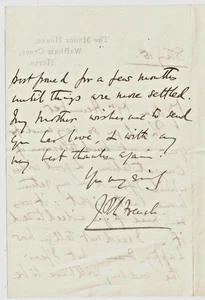 The Manor House,
Waltham Cross,
Herts.
postponed for a few months
until things are more settled.
My mother wishes me to send
you her love & with my
very best thanks again!
J. French